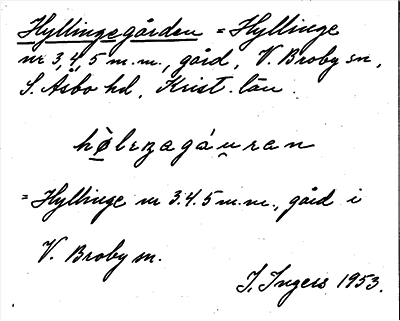 Hyllingegården = Hyllinge
nr 3, 4, 5 m.m., gård, V. Broby sn,
S. Åsbo hd, Krist. län.
hø̀lᴇŋagáu̯ran
= Hyllinge nr 3.4.5 m.m., gård i
V. Broby sn.
I. Ingers 1953.